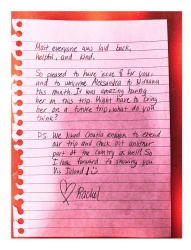 Most everyone was laid back,
helpful, and kind.
So pleased to have you & for you
and to welcome Alexandra to Nirvana
this month. It was amazing having
her on this trip. Might have to bring
her on a future trip, what do you
think?
P.S. We loved Croatia enough to extend
our trip and check out another
part of the country as well! So
I look forward to showing you
Vis Island!
Rachel